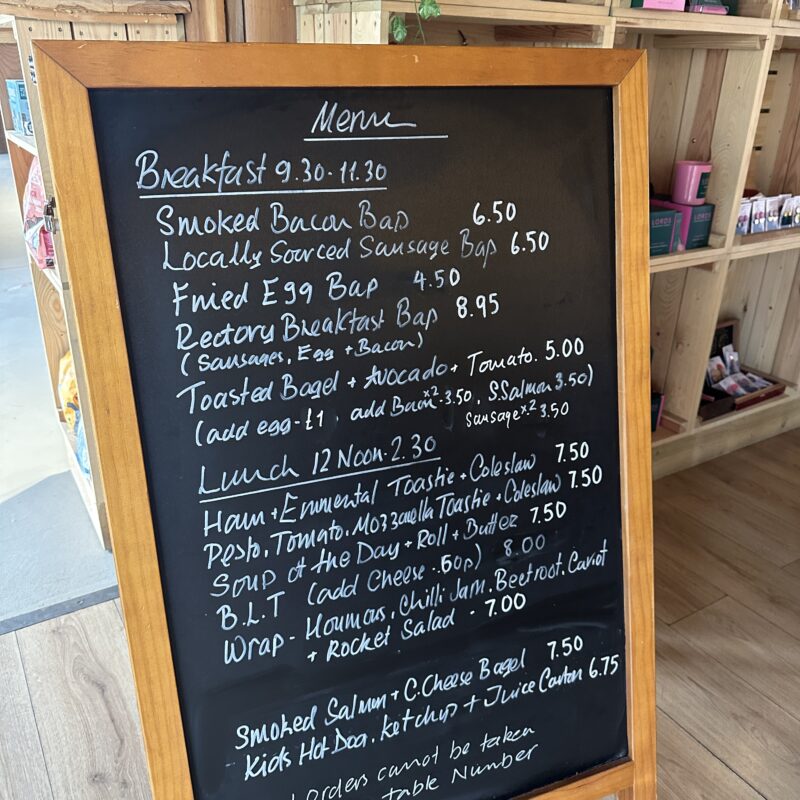 Menu
Breakfast 9.30-11.30
Smoked Bacon Bap 6.50
Locally Sourced Sausage Bap 6.50
Fried Egg Bap 4.50
Rectory Breakfast Bap 8.95
(Sausages, Egg + Bacon)
Toasted Bagel + Avocado + Tomato. 5.00
(add egg-£1, add Bacon x2 -3.50, S.Salmon 3.50)
Sausage x2 3.50
Lunch 12 Noon-2.30
Ham + Emmental Toastie + Coleslaw 7.50
Pesto, Tomato, Mozzarella Toastie + Coleslaw 7.50
Soup of the Day + Roll + Butter 7.50
B.L.T (add Cheese .50p) 8.00
Wrap - Houmous, Chilli Jam, Beetroot, Carrot
+ Rocket Salad - 7.00
Smoked Salmon + C.Cheese Bagel 7.50
Kids Hot Dog, Ketchup + Juice Carton 6.75
orders cannot be taken
table Number
LORDS